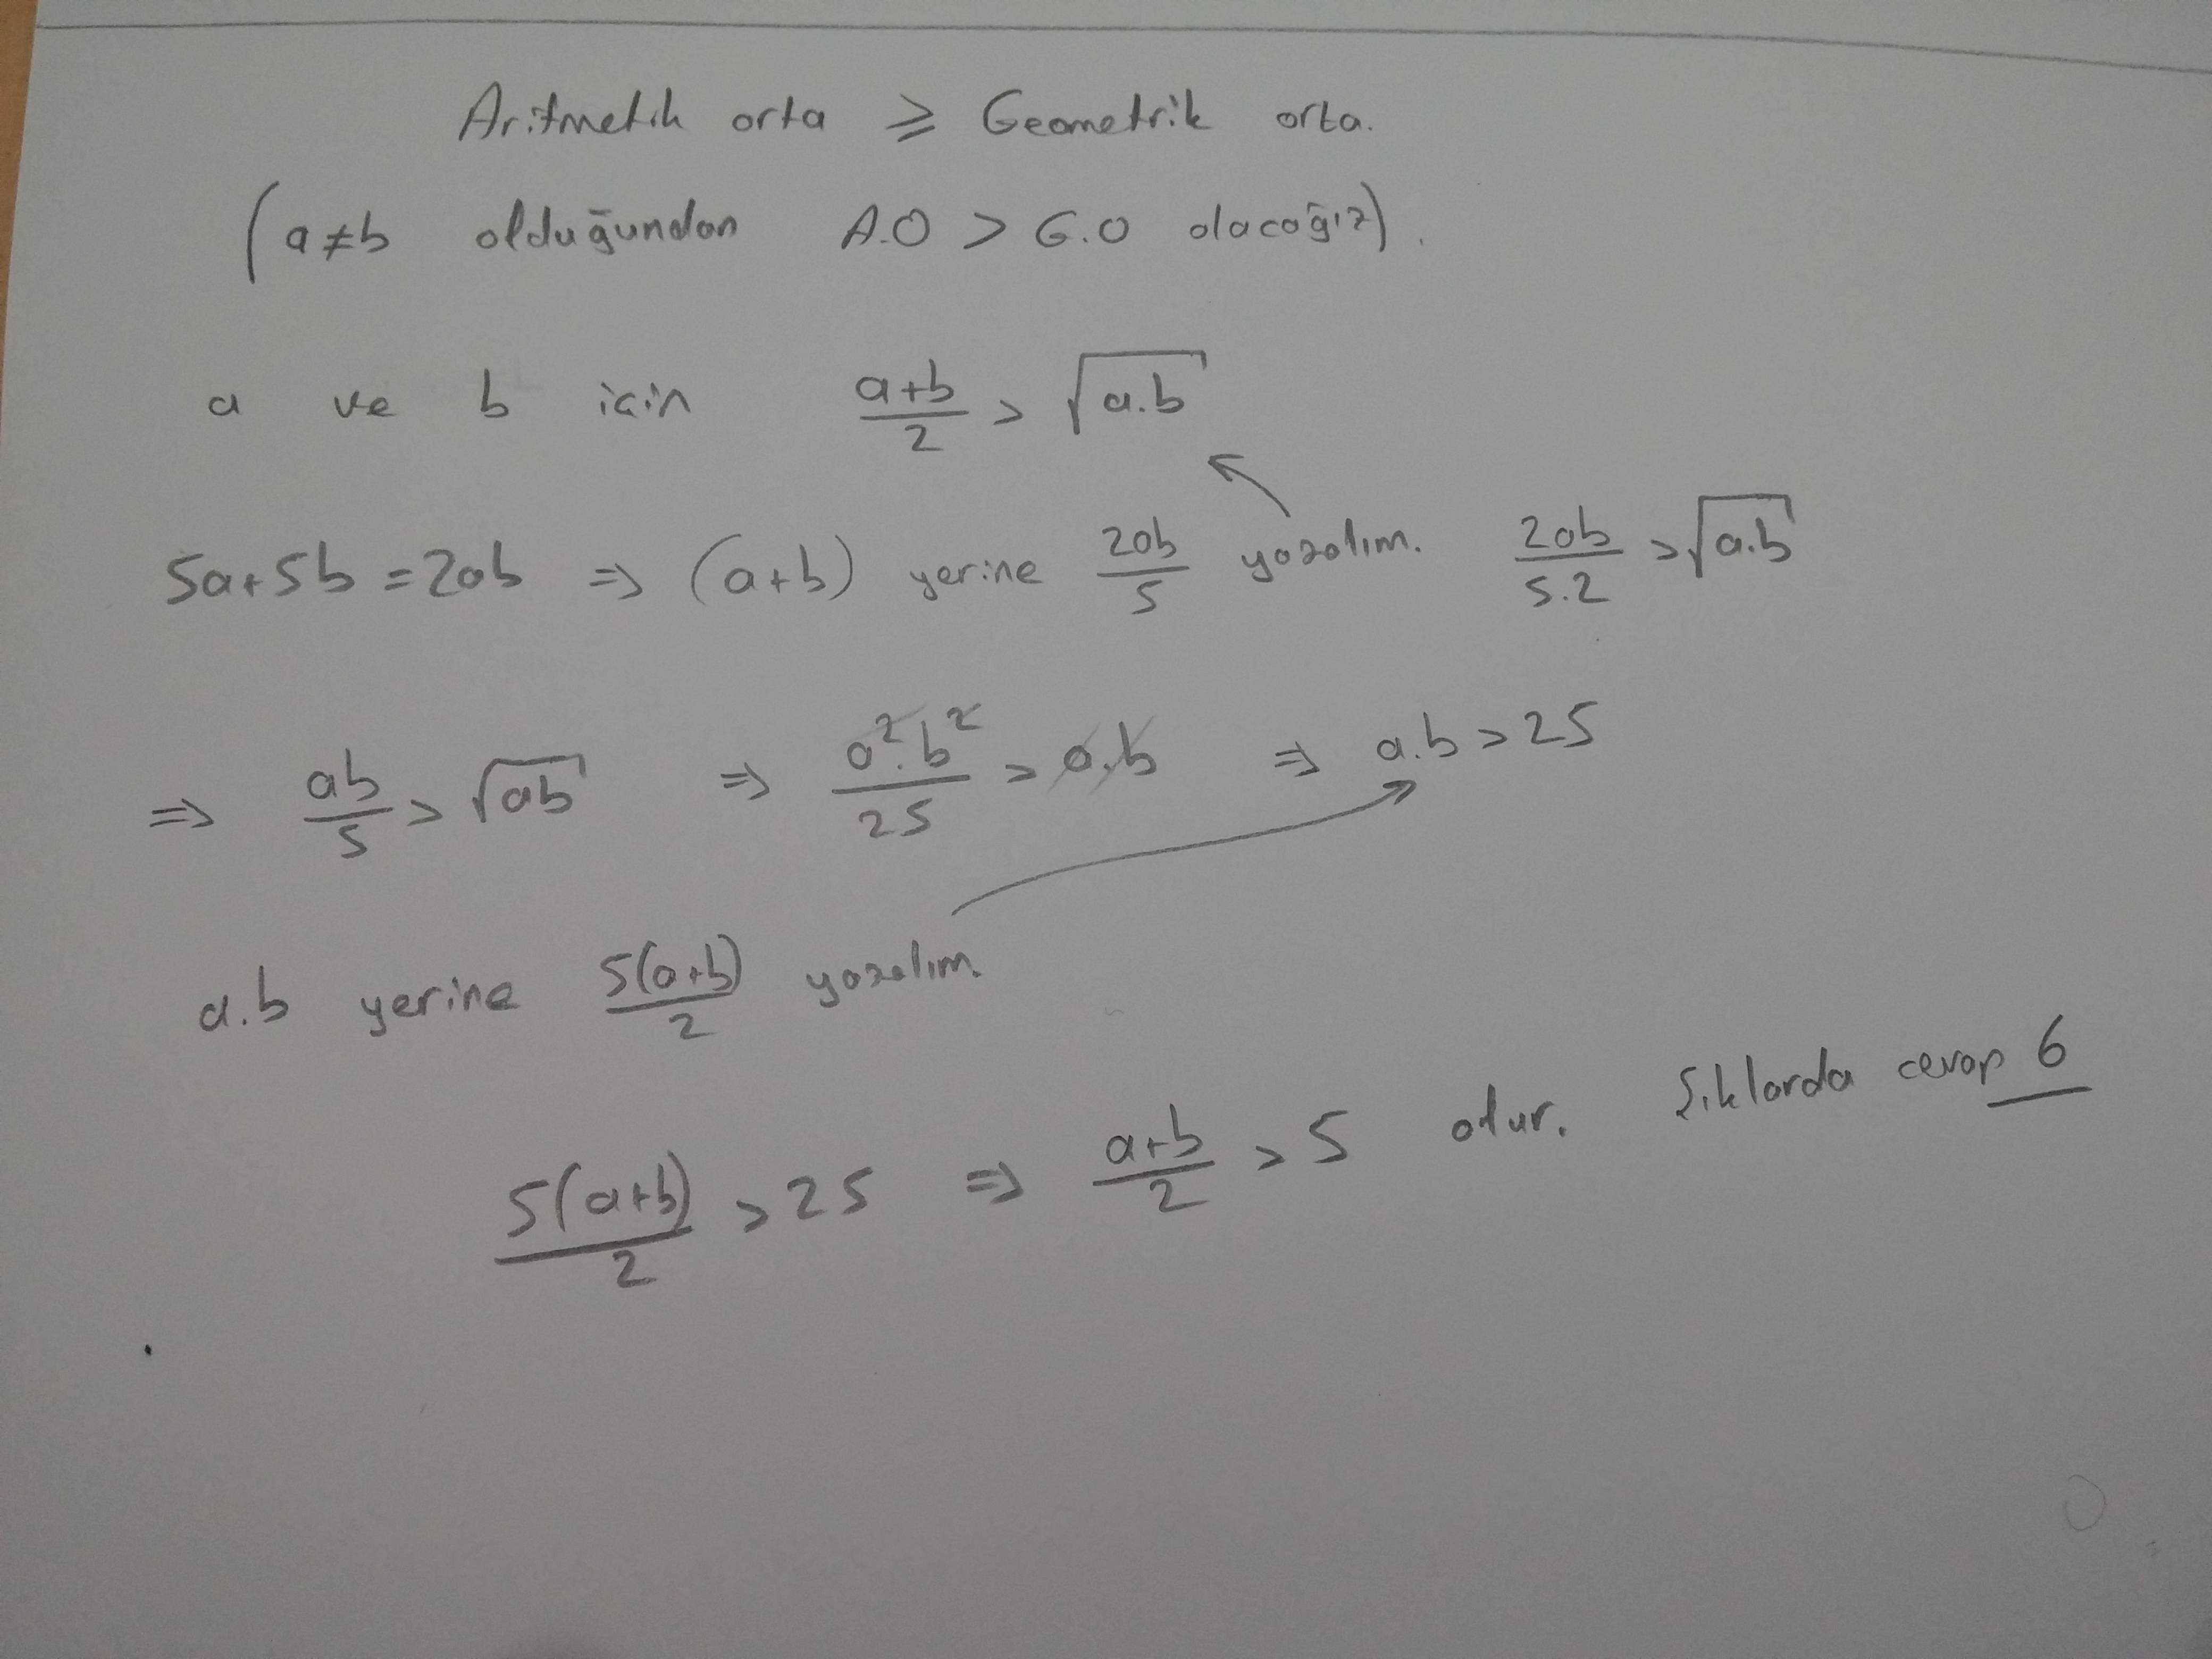 Aritmetik orta ≥ Geometrik orta.
(a≠b olduğundan A.O > G.O olacağız).
a ve b için (a+b)/2 > √(a.b)
5a+5b=2ab ⇒ (a+b) yerine 2ab/5 yazalım. 2ab/5.2 > √(a.b)
⇒ ab/5 > √(ab) ⇒ a².b²/25 > a.b ⇒ a.b > 25
a.b yerine 5(a+b)/2 yazalım.
5(a+b)/2 > 25 ⇒ (a+b)/2 > 5 olur. Şıklarda cevap 6